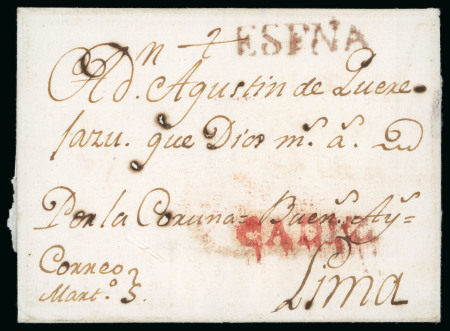 ESPNA
A d.n Agustin de Quere-
jazu. que Dios m.s a.s
Por la Coruna= Buen.s Ay.s=
CADIZ
Correo
Mart.o 3.
Lima